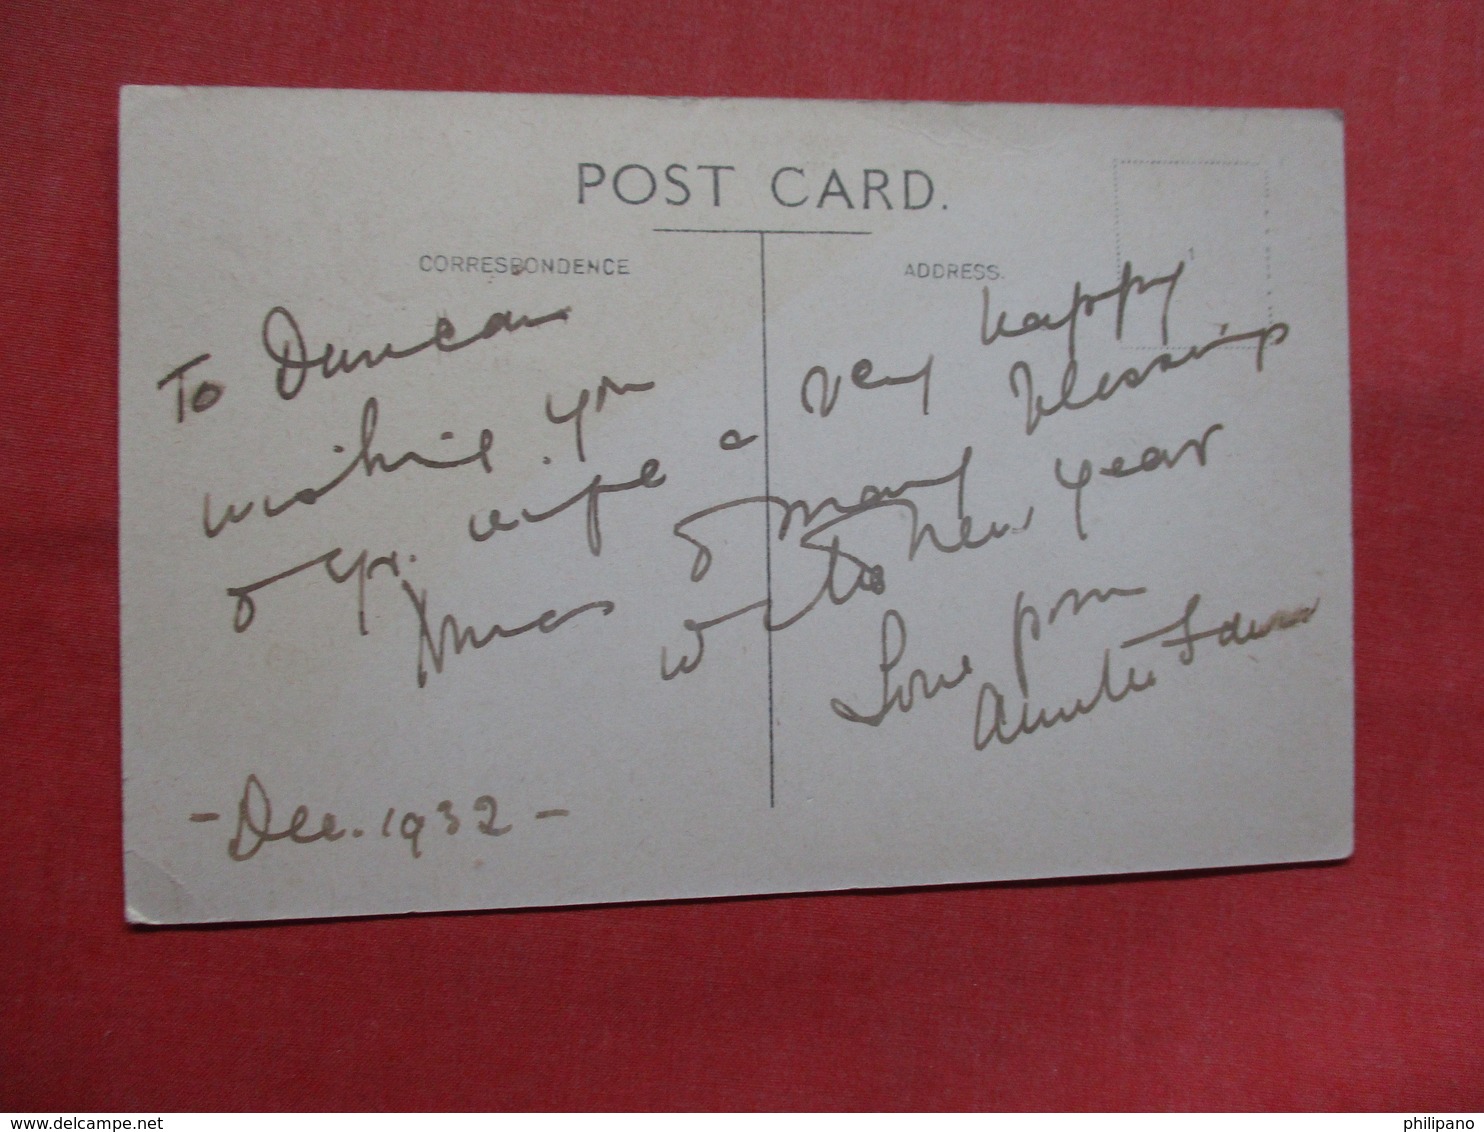 POST CARD.
CORRESPONDENCE
ADDRESS.
To Duncan
wishing you
& yr. wife a very happy
Xmas & many blessings
with the New Year
Love from
Auntie
- Dec. 1932 -
www.delcampe.net
philipano